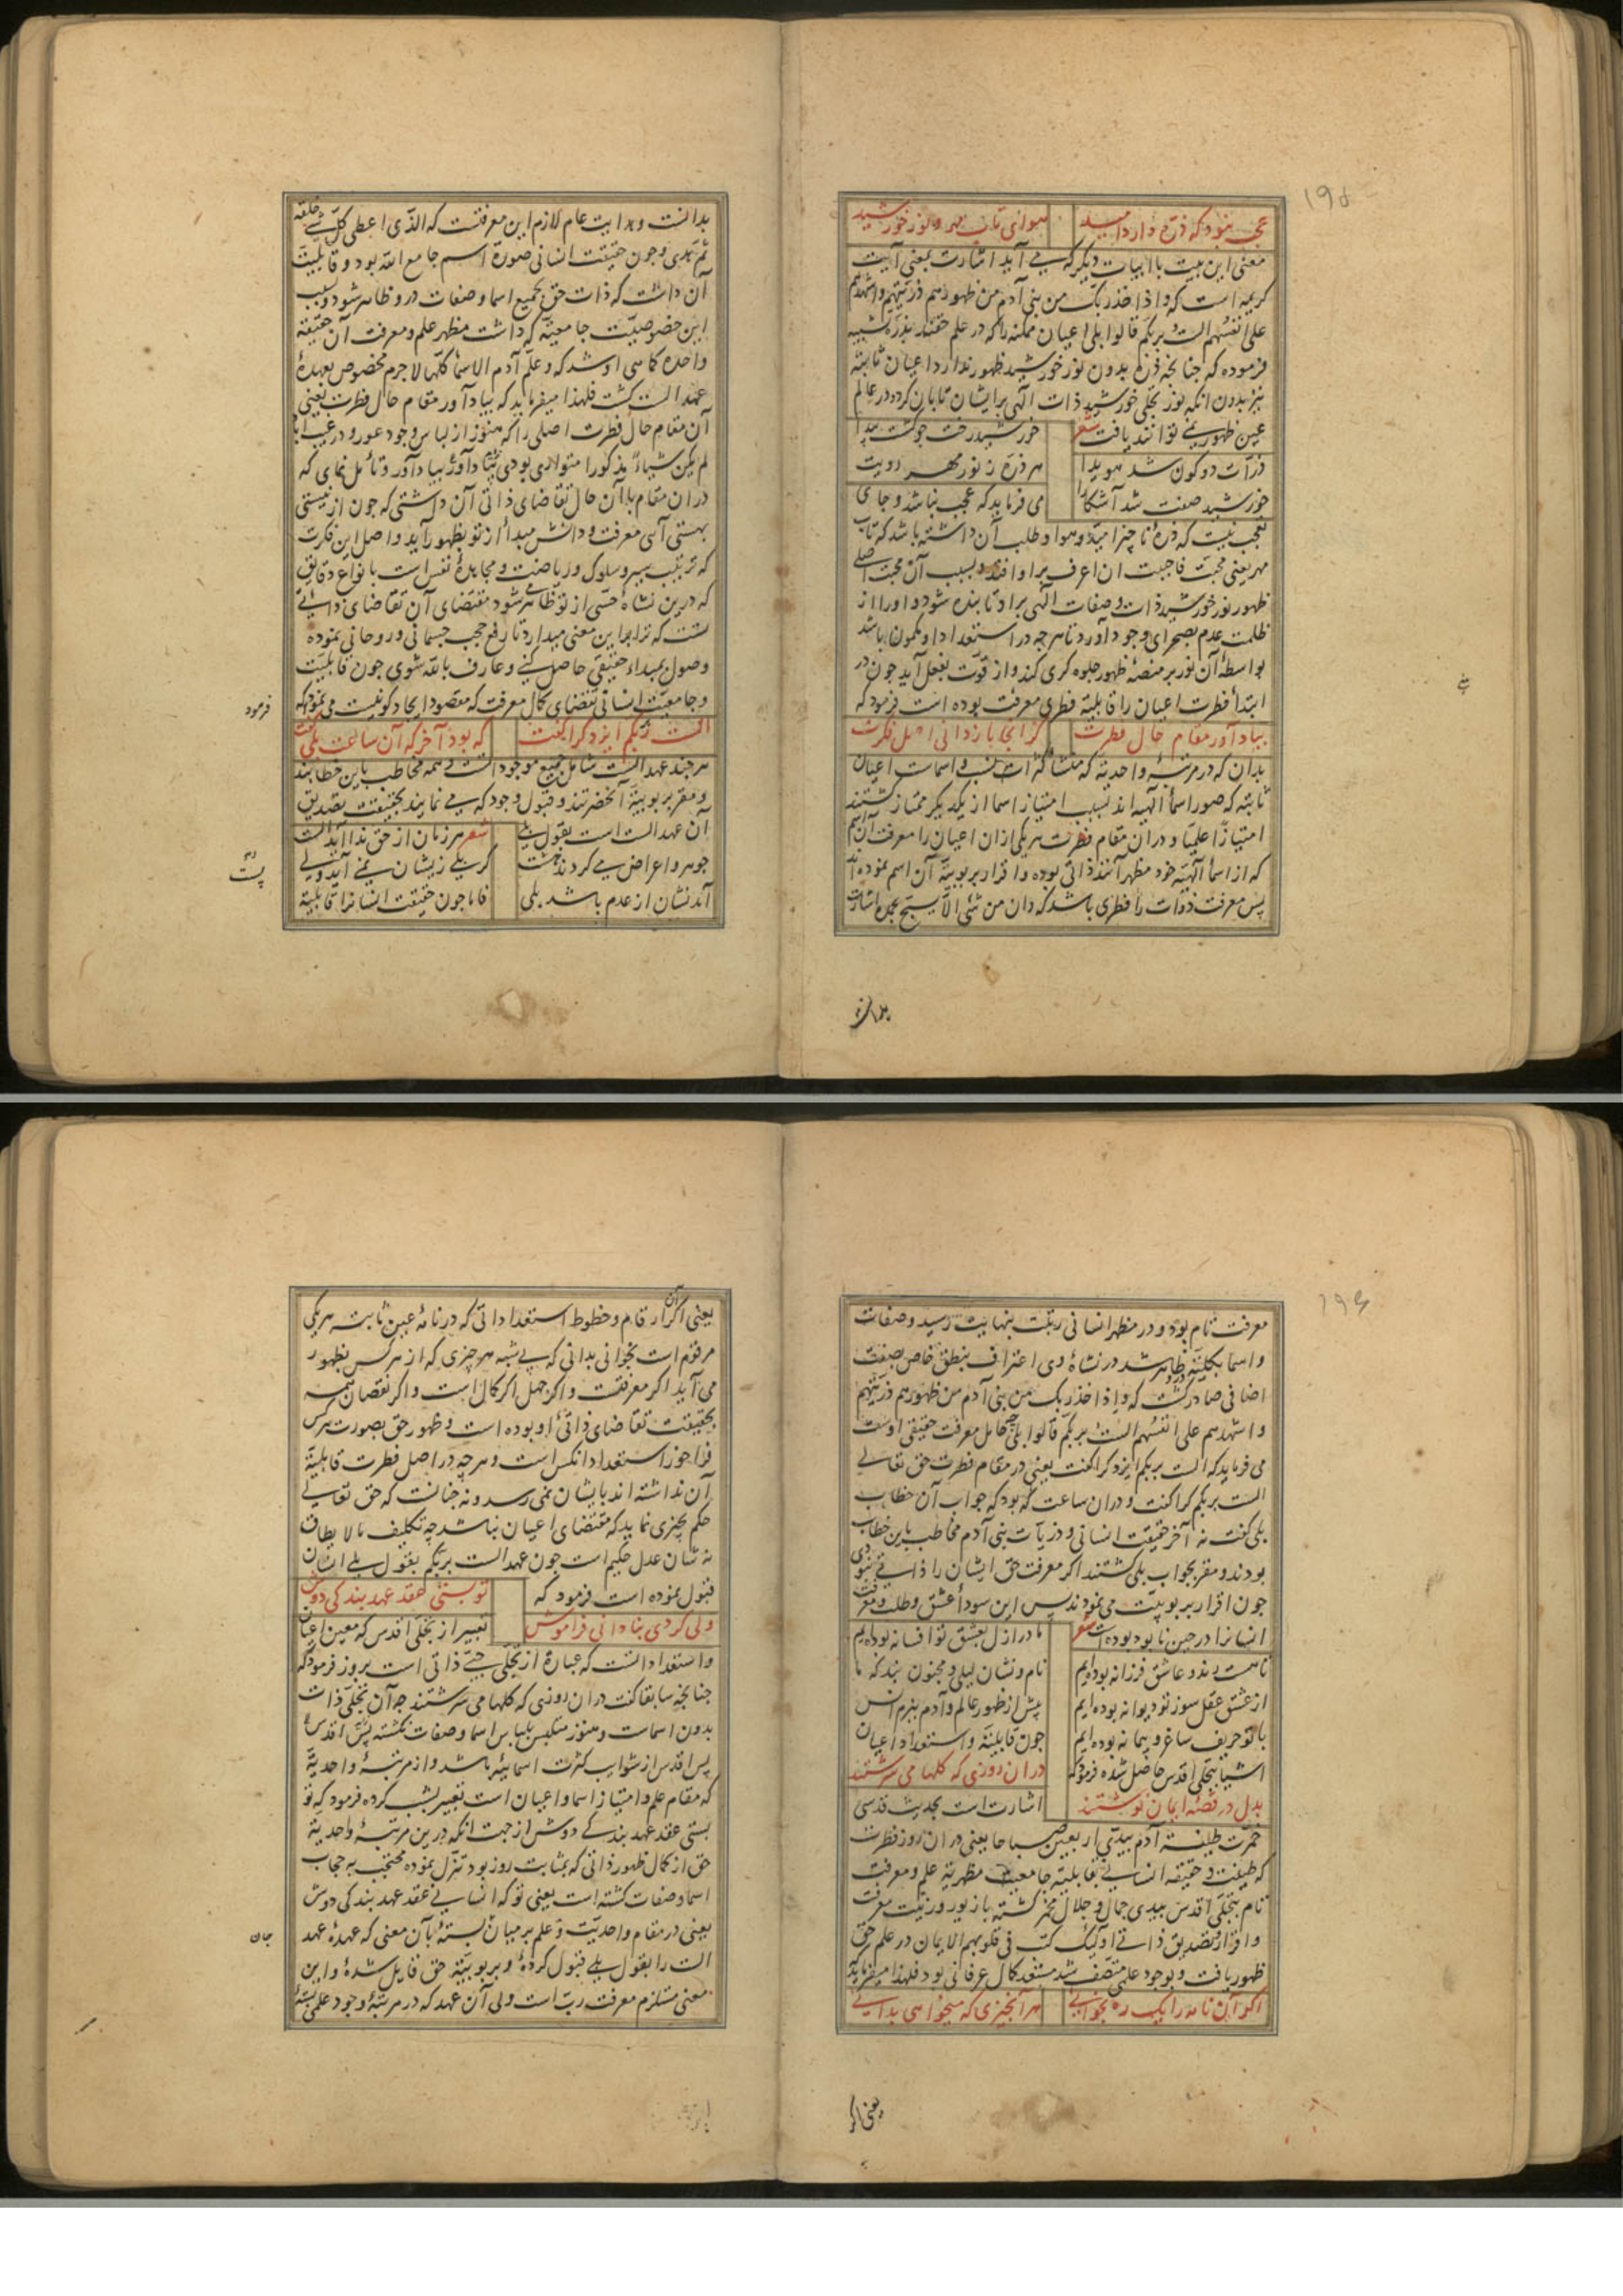 ۱۹۵
عجب نبود که ذره دارد امید
هوای تاب مهر و نور خورشید
معنی این بیت با ابیات دیگر که می آید اشارت بمعنی آیت
کریمه است که واذا اخذ ربک من بنی آدم من ظهورهم ذریتهم واشهدهم
علی انفسهم الست بربکم قالوا بلی اعیان ممکنه را که در علم حقند بذره تشبیه
فرموده که جنانچه ذره بدون نور خورشید ظهور ندارد اعیان ثابته
نیز بدون انکه نور تجلی خورشید ذات الهی برایشان تابان کردد در عالم
عین ظهور نمی توانند یافت شعر
خورشید رخت جو کشت پیدا
ذرات دو کون شد هویدا
مهر رویت
هر ذره ز نور
خورشید صفت شد آشکارا
می فرماید که عجب نباشد و جای
تعجب نیست که ذره ناچیز امید و هوا و طلب آن داشته باشد که تاب
مهر یعنی محبت فاحببت ان اعرف براو افتد و بسبب آن محبت اصلی
ظهور نور خورشید ذات وصفات الهی براو تابنده شود و اورا از
ظلمت عدم بصحرای وجود آورد تا هرچه در استعداد او مکمون باشد
بواسطه آن نور بر منصه ظهور جلوه کری کند و از قوت بفعل آید جون در
ابتدا فطرت اعیان را قابلیة فطری معرفت بوده است فرمود که
بیاد آور مقام حال فطرت
کز انجا باز دانی اصل فکرت
بدان که در مرتبه واحدیه که منشأ کثرات نسب و اسماست اعیان
ثابته که صور اسما الهیه اند بسبب امتیاز اسما از یکدیکر ممتاز کشتند
امتیازا علمیا و دران مقام فطرت هر یکی ازان اعیان را معرفت آن اسم
که از اسما الهیه خود مظهر آنند ذاتی بوده و اقرار بربوبیة آن اسم نموده اند
پس معرفت ذوات را فطری باشد که وان من شی الا یسبح بحمده اشارت
بدانست
بدانست و هدایت عام لازم این معرفتست که الذی اعطی کل شی خلقه
ثم هدی وجون حقیقت انسانی صورة اسم جامع الله بود و قابلیت
آن داشت که ذات حق بجمیع اسما وصفات درو ظاهر شود و بسبب
این خصوصیت جامعیة که داشت مظهر علم و معرفت آن حقیقة
واحده کماهی اوشد که وعلم آدم الاسما کلها لاجرم مخصوص بعهده
عهد الست کشت فلهذا میفرماید که بیاد آور مقام حال فطرت یعنی
آن مقام حال فطرت اصلی را که هنوز از لباس وجود عور و در غیب
لم یکن شیاء مذکورا متواری بودی بیاد آور و تامل نمای که
دران مقام با آن حال تقاضای ذاتی آن داشتی که جون از نیستی
بهستی آئی معرفت و دانش مبدأ از تو بظهور آید و اصل این فکرت
که ترتیب سیر و سلوک و ریاضت و مجاهده نفس است بانواع دقایق
که درین نشاه حسی از تو ظاهر شود مقتضای آن تقاضای ذاتی
تست که ترا برین معنی میدارد تا رفع حجب جسمانی و روحانی نموده
وصول بمبداء حقیقی حاصل کنی و عارف بالله شوی جون قابلیت
وجامعیت انسانی تقتضای کمال معرفت که مقصود ایجاد کونیست می نمود که
فرمود
الست بربکم ایزد کرا گفت
که بود آخر که آن ساعت بلی گفت
هر جند عهد الست شامل جمیع موجوداتست و همه مخاطب باین خطابند
ومقر بربوبیة آنحضرتند و قبول وجود که می نمایند بحقیقت تصدیق
آن عهد الست است بقول بلی
شعر هر زمان از حق ندا آید الست
جوهر و اعراض می کردند هست
کر بلی زیشان نمی آید ولی
آمدنشان از عدم باشد بلی
فاما جون حقیقت انسانرا قابلیة
۱۹۶
معرفت تام بود و در مظهر انسانی ربتت بنهایت رسید وصفات
واسما بکلیته ظاهر شد در نشاه وی اعتراف بنطق خاص بصفت
اضافی صادر کشت که واذا اخذ ربک من بنی آدم من ظهورهم ذریتهم
واشهدهم علی انفسهم الست بربکم قالوا بلی حامل معرفت حقیقی اوست
می فرماید که الست بربکم ایزد کرا کفت یعنی در مقام فطرت حق تعالی
الست بربکم کرا کفت و دران ساعت که بود که جواب آن خطاب
بلی کفت نه آخر حقیقت انسانی و ذریات بنی آدم مخاطب باین خطاب
بودند و مقر بجواب بلی کشتند اکر معرفت حق ایشان را ذاتی نبودی
جون اقرار بربوبیت می نمودند پس این سودأ عشق و طلب و معرفت
انسانرا در حین نابود بوده است شعر
ما در ازل بعشق تو افسانه بوده ایم
نام و نشان لیلی و مجنون نبد که ما
از عشق عقل سوز تو دیوانه بوده ایم
پیش از ظهور عالم و آدم ببزم انس
با تو حریف ساغر و پیمانه بوده ایم
جون قابلیة و استعداد اعیان
اشیا بتجلی اقدس حاصل شده فرمود که
دران روزی که کلها می سرشتند
بدل در قصه ایمان نوشتند
اشارت است بحدیث قدسی
خمرت طینة آدم بیدی اربعین صباحا یعنی دران روز فطرت
که طینت و حقیقه انسانی بقابلیة جامعیت مظهریة علم و معرفت
تام بتجلی اقدس بیدی جمال و جلال مخمر کشته بازیور و زینت معرفت
و اقرار و تصدیق ذاتی اولئک کتب فی قلوبهم الایمان در علم حق
ظهور یافت و بوجود علمی متصف شد مستعد کمال عرفانی بود فلهذا میفرماید
اکر آن نامه را یک ره بخوانی
هر آنچیزی که میخواهی بدانی
یعنی اکر
یعنی اکر آن ارقام و خطوط استعداداتی که در نامه عین ثابته هر یکی
مرقوم است بخوانی بدانی که بی شبه هر چیزی که از هر کس بظهور
می آید اکر معرفتست و اکر جهل اکر کمال است و اکر نقصان همه
بحقیقت تقاضای ذاتی او بوده است و ظهور حق بصورت هر کس
فراخور استعداد انکس است و هرچه در اصل فطرت قابلیة
آن نداشته اند بایشان نمی رسد و نه جنانست که حق تعالی
حکم بچیزی نماید که مقتضای اعیان نباشد چه تکلیف مالا یطاق
نه شان عدل حکیم است جون عهد الست بربکم بقول بلی انسان
قبول نموده است فرمود که
تو بستی عقد عهد بندکی دوش
ولی کردی بنادانی فراموش
تعبیر از تجلی اقدس که معین اعیان
واستعدادانست که عبارة از تجلی حبی ذاتی است بروز فرمود که
جنانچه سابقا کفت دران روزی که کلها می سرشتند چه آن تجلی ذات
بدون اسماست و هنوز متلبس بلباس اسما وصفات نکشته
پس اقدس از شوایب کثرت اسمائیة باشد و از مرتبه واحدیة
که مقام علم و امتیاز اسما و اعیان است تعبیر بشب کرده فرمود که تو
بستی عقد عهد بندکی دوش از جهت انکه درین مرتبه واحدیة
حق از کمال ظهور ذاتی که بمثابت روز بود تنزل نموده محتجب به حجاب
اسما وصفات کشته است یعنی تو که انسانی عقد عهد بندکی دوش
یعنی در مقام واحدیت و علم بر میان بسته بآن معنی که عهده عهد
الست را بقول بلی قبول کرده و بربوبیة حق قایل شده و این
معنی مستلزم معرفت ربست است ولی آن عهد که در مرتبه وجود علمی بسته